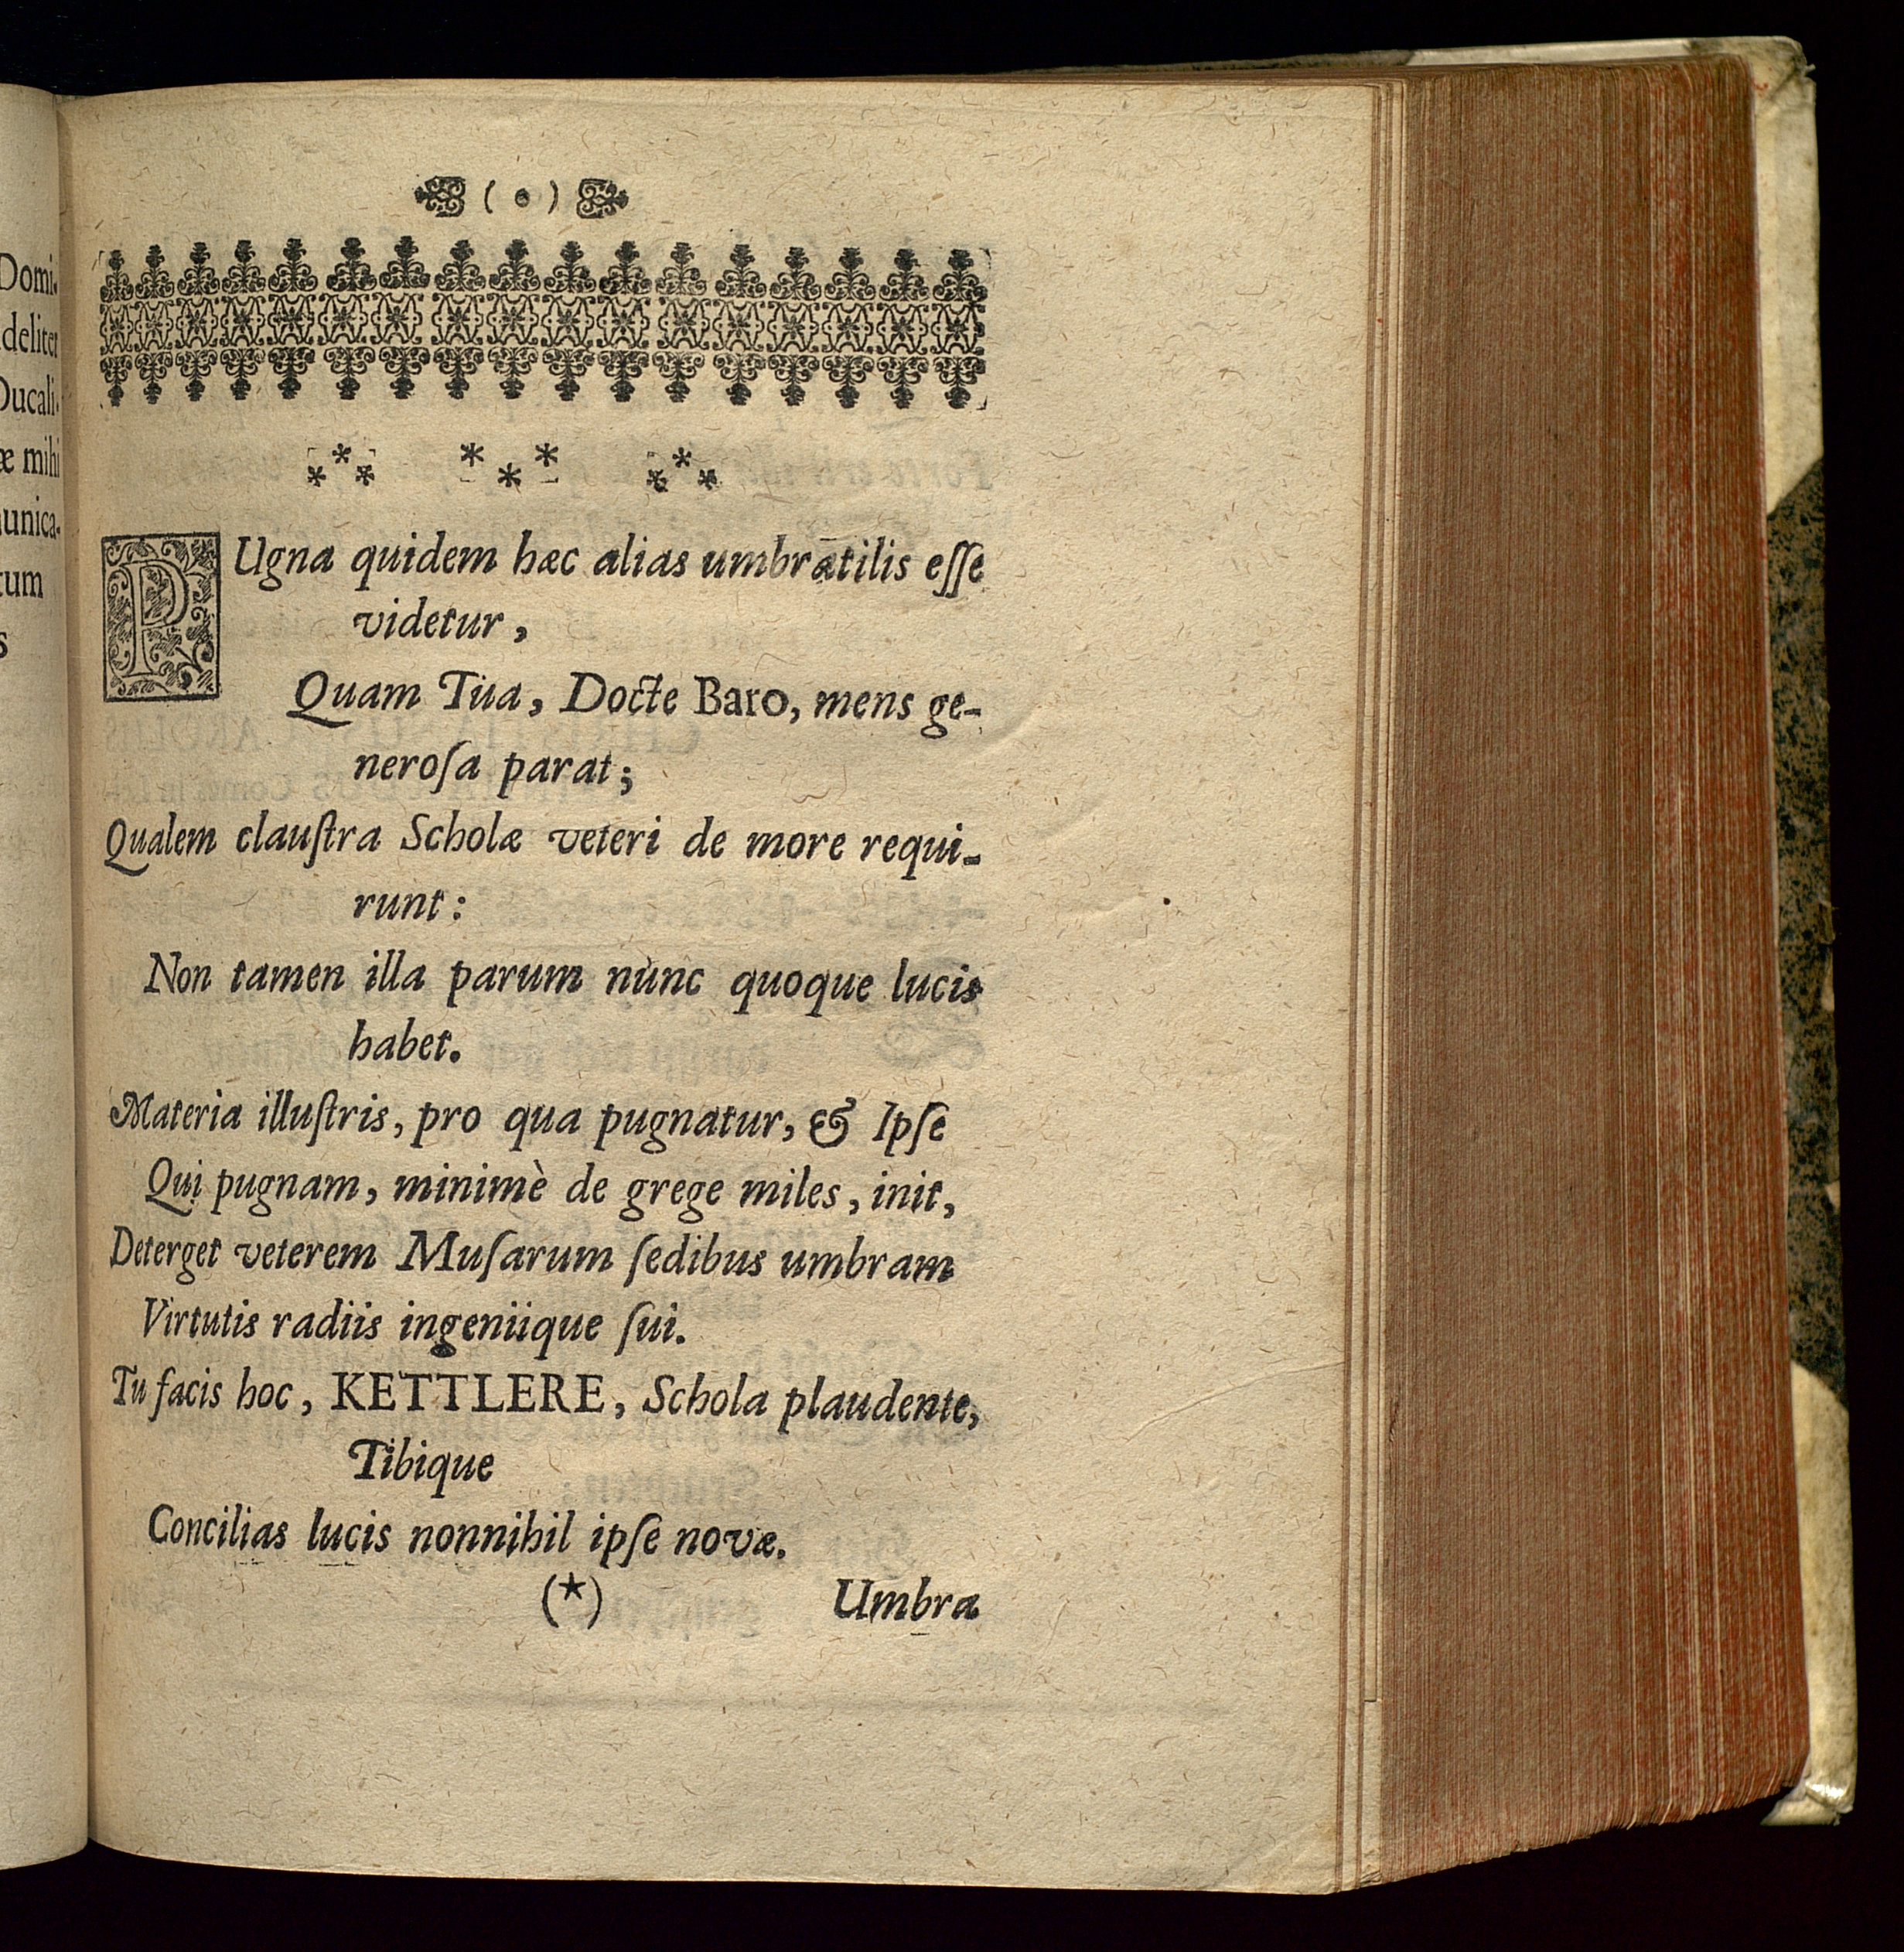 ( o )
* * * * * * * * *
PUgna quidem hæc alias umbratilis eſſe
videtur,
Quam Tua, Docte Baro, mens ge-
neroſa parat;
Qualem clauſtra Scholæ veteri de more requi-
runt:
Non tamen illa parum nunc quoque lucis
habet.
Materia illuſtris, pro qua pugnatur, & Ipſe
Qui pugnam, minimè de grege miles, init,
Deterget veterem Muſarum ſedibus umbram
Virtutis radiis ingeniique ſui.
Tu facis hoc, KETTLERE, Schola plaudente,
Tibique
Concilias lucis nonnihil ipſe novæ.
(*) Umbra
Domi-
deliter
Ducali-
æ mihi
unica-
tum
s